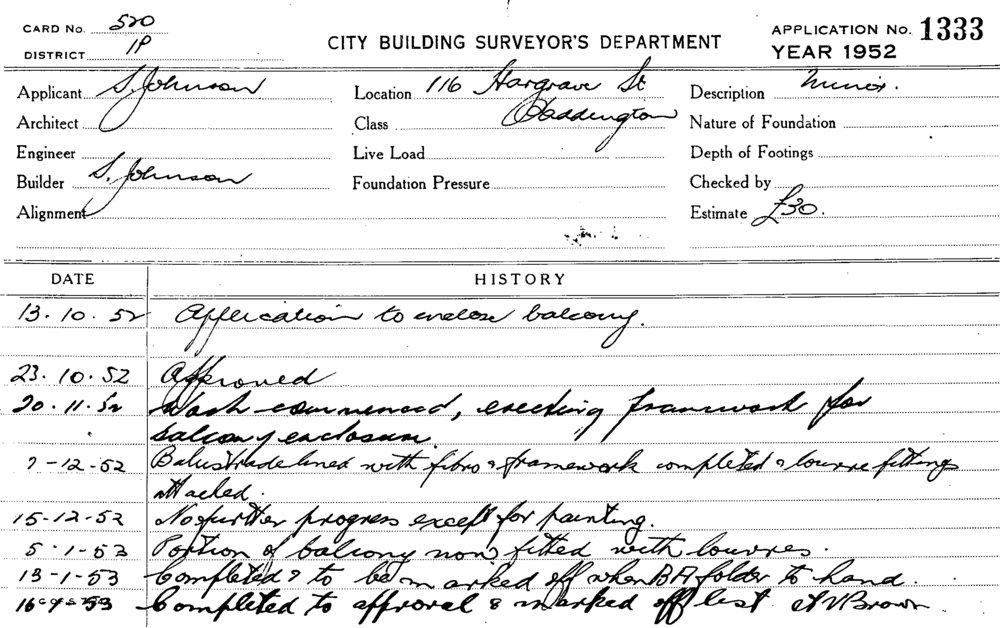 CARD No. 520
DISTRICT 1P
CITY BUILDING SURVEYOR'S DEPARTMENT
APPLICATION No. 1333
YEAR 1952
Applicant S. Johnson
Location 116 Hargrave St
Paddington
Description Minor.
Architect
Class
Nature of Foundation
Engineer
Live Load
Depth of Footings
Builder S. Johnson
Foundation Pressure
Checked by
Alignment
Estimate £30.
DATE HISTORY
13.10.52 Application to enclose balcony.
23.10.52 Approved
20.11.52 Work commenced, erecting framework for
balcony enclosure.
9-12-52 Balustrade lined with fibro & framework completed & louvre fittings
attached.
15-12-52 No further progress except for painting.
5-1-53 Portion of balcony now fitted with louvres.
13-1-53 Completed & to be marked off when BA folder to hand.
16-9-53 Completed to approval & marked off list Brown